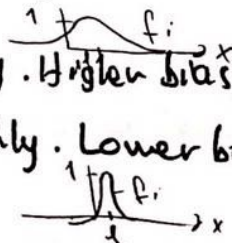 1 fi x
y. Higher bias
ly. Lower b
1 fi
l x